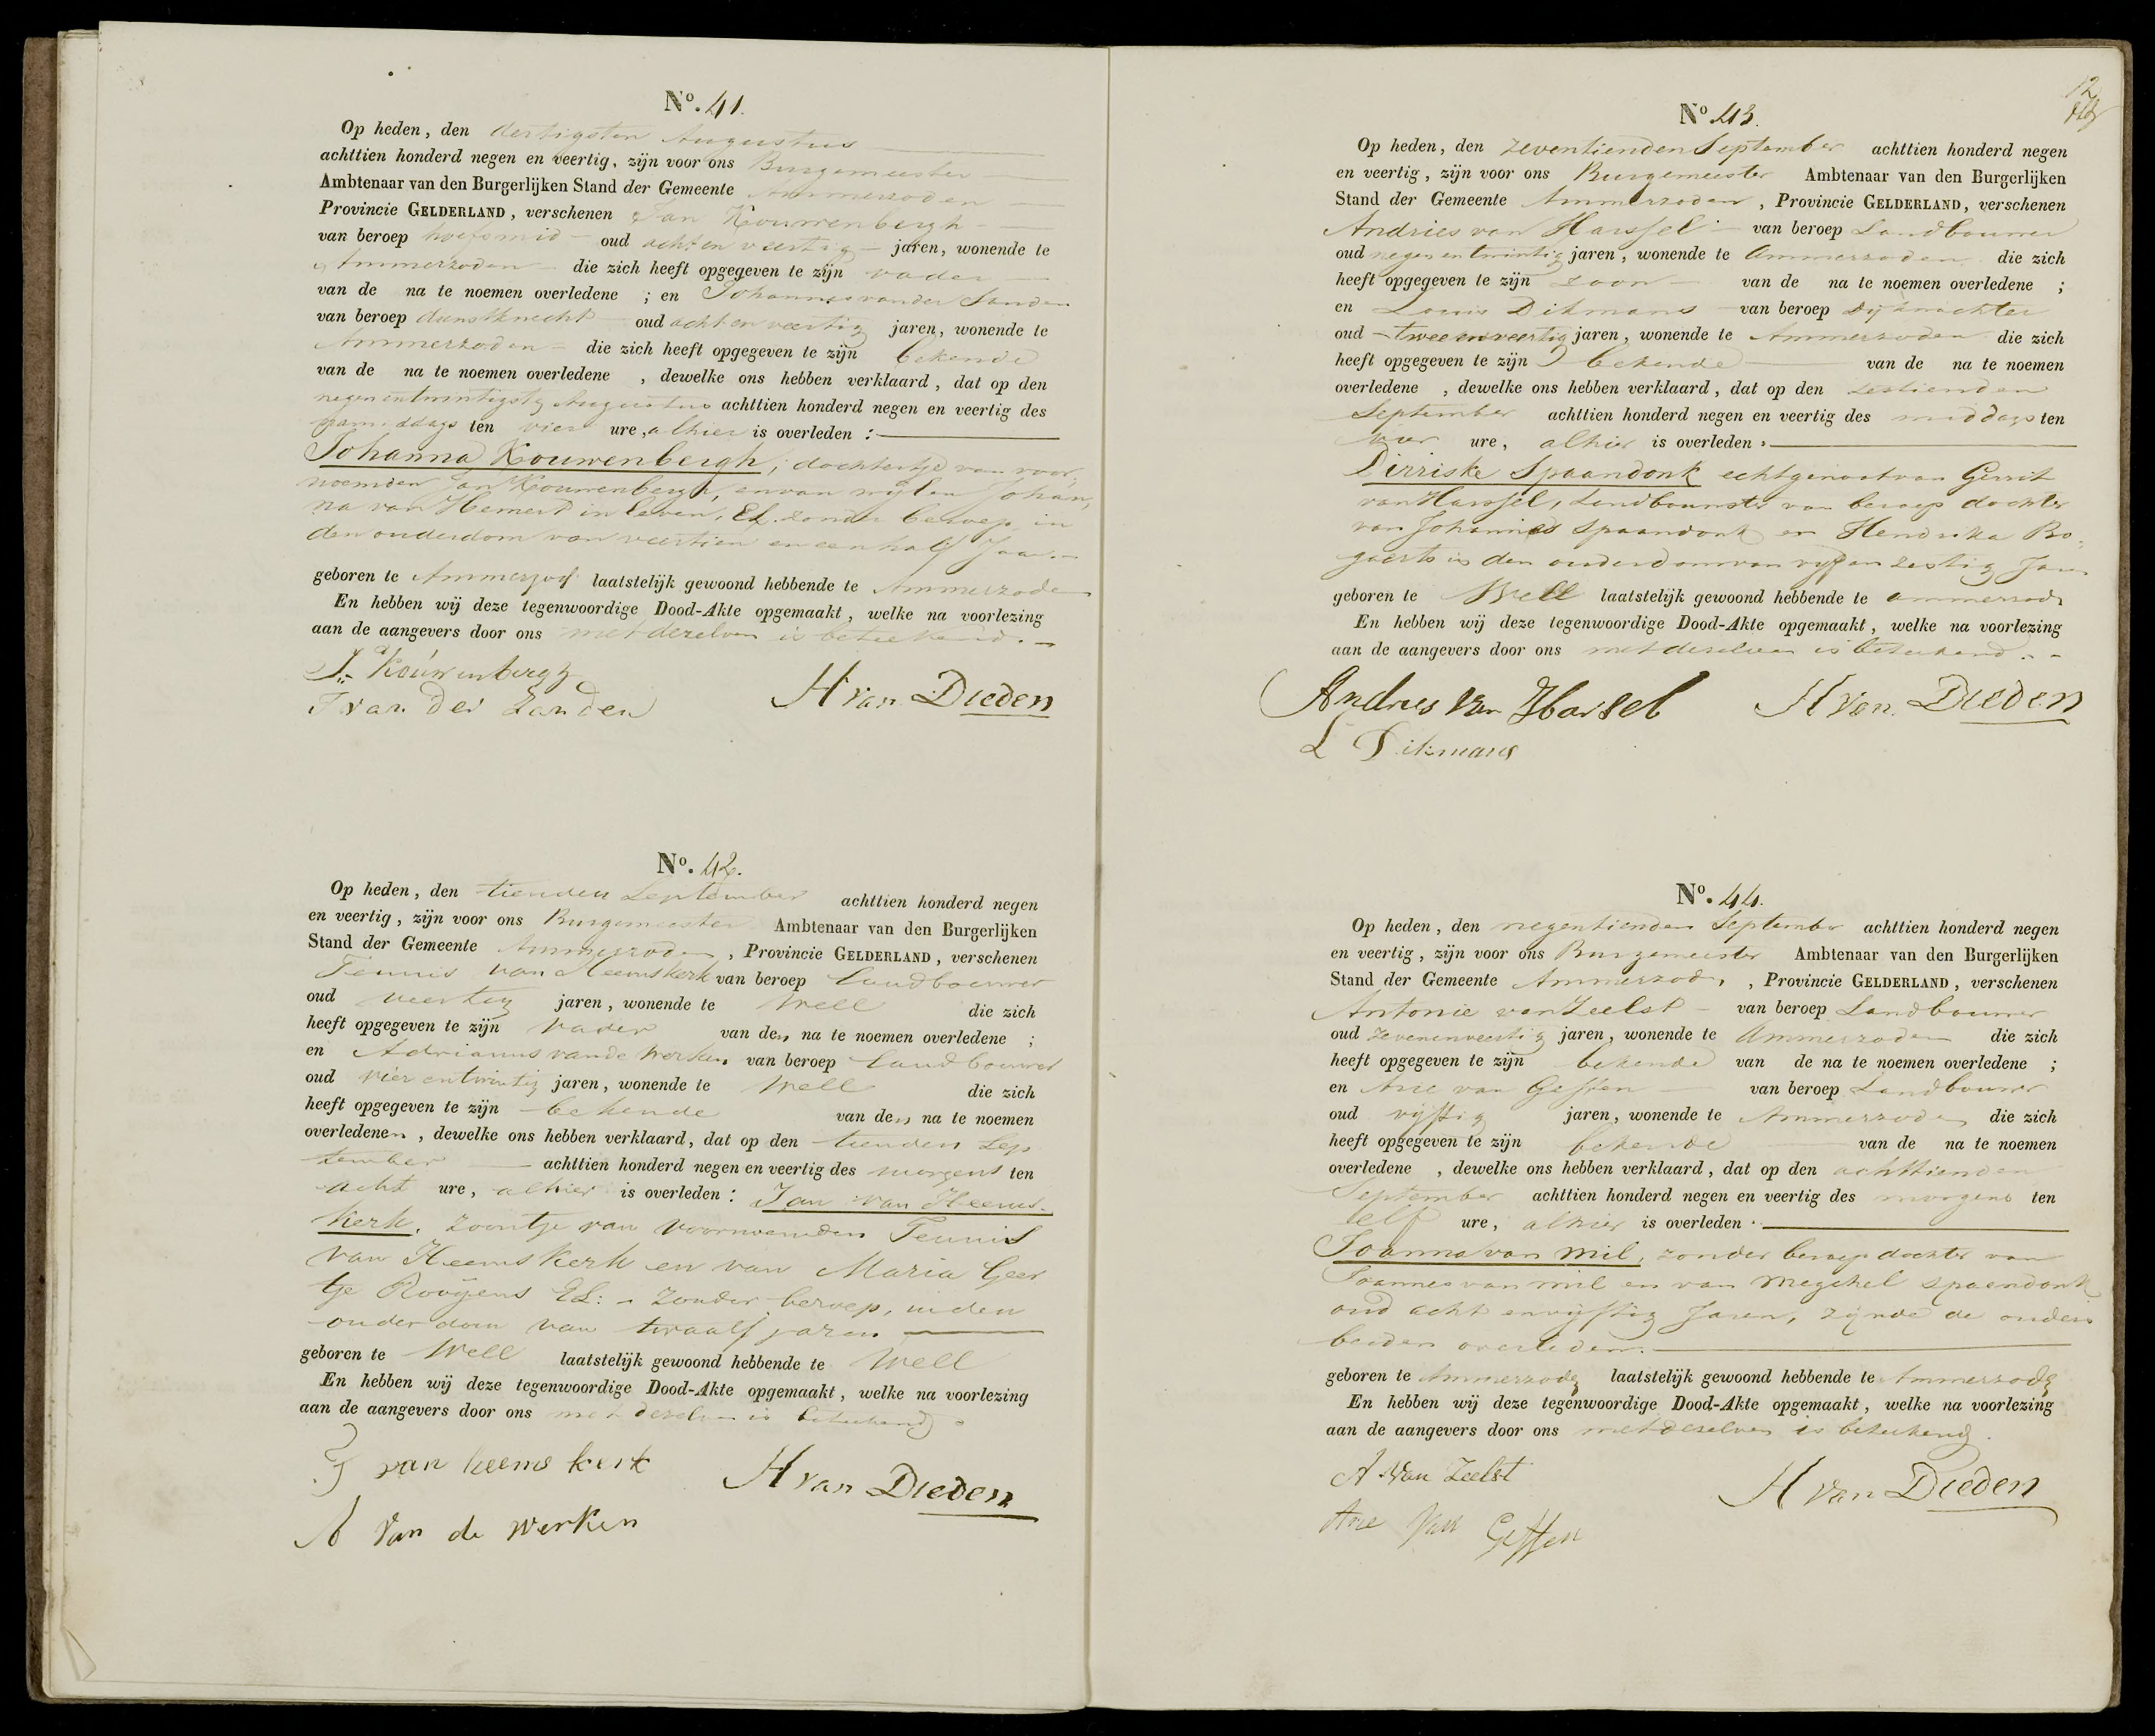 N.º 41.
Op heden, den dertigsten Augustus
achttien honderd negen en veertig, zijn voor ons Burgemeester
Ambtenaar van den Burgerlijken Stand der Gemeente Ammerzoden
Provincie GELDERLAND, verschenen Jan Kouwenbergh
van beroep hoefsmid oud acht en veertig jaren, wonende te
Ammerzoden die zich heeft opgegeven te zijn vader
van de na te noemen overledene ; en Johannes van der Sanden
van beroep dienstknecht oud acht en veertig jaren, wonende te
Ammerzoden die zich heeft opgegeven te zijn bekende
van de na te noemen overledene , dewelke ons hebben verklaard, dat op den
negen en twintigste Augustus achttien honderd negen en veertig des
ten vier ure, alhier is overleden :
Johanna Kouwenbergh, dochtertje van voor
noemden Jan Kouwenbergh, en van wijlen Johan,
na van Hemert in leven, El. zonder beroep, in
den ouderdom van veertien en een half Jaar.
geboren te Ammerzod laatstelijk gewoond hebbende te Ammerzoden
En hebben wij deze tegenwoordige Dood-Akte opgemaakt, welke na voorlezing
aan de aangevers door ons met dezelven is beteekend.
J. Kouwenbergh
J van der Zanden H van Dieden
N.º 42.
Op heden, den tienden September achttien honderd negen
en veertig, zijn voor ons Burgemeester Ambtenaar van den Burgerlijken
Stand der Gemeente Ammerzoden, Provincie GELDERLAND, verschenen
Teunis van Heemskerk van beroep Landbouwer
oud veertig jaren, wonende te Well die zich
heeft opgegeven te zijn Vader van den na te noemen overledene ;
en Adrianus van de Werken van beroep Landbouwer
oud vier en twintig jaren, wonende te Well die zich
heeft opgegeven te zijn bekende van den na te noemen
overledenen, dewelke ons hebben verklaard, dat op den tienden Sep
tember achttien honderd negen en veertig des morgens ten
acht ure, alhier is overleden : Jan van Heems-
kerk, zoontje van voornoemden Teunis
van Heemskerk en van Maria Geer
tje Rooijens El: - zonder beroep, in den
ouderdom van twaalf jaren
geboren te Well laatstelijk gewoond hebbende te Well
En hebben wij deze tegenwoordige Dood-Akte opgemaakt, welke na voorlezing
aan de aangevers door ons met dezelven is beteekend.
T van heems kerk
H van Dieden
A Van de Werken
12
N.º 43.
Op heden, den zeventienden September achttien honderd negen
en veertig, zijn voor ons Burgemeester Ambtenaar van den Burgerlijken
Stand der Gemeente Ammerzoden, Provincie GELDERLAND, verschenen
Andries van Harssel van beroep Landbouwer
oud negen en twintig jaren, wonende te Ammerzoden die zich
heeft opgegeven te zijn zoon van de na te noemen overledene ;
en Louis Dikmans van beroep Dijkwachter
oud twee en veertig jaren, wonende te Ammerzoden die zich
heeft opgegeven te zijn bekende van de na te noemen
overledene , dewelke ons hebben verklaard, dat op den zestienden
September achttien honderd negen en veertig des middags ten
vier ure, alhier is overleden :
Dirriske Spaandonk echtgenoot van Gerrit
van Harssel, Landbouwster van beroep dochter
van Johannes Spaandonk en Hendrika Bo-
gaerts in den ouderdom van vijf en zestig Jaar
geboren te Well laatstelijk gewoond hebbende te Ammerzode
En hebben wij deze tegenwoordige Dood-Akte opgemaakt, welke na voorlezing
aan de aangevers door ons met dezelven is beteekend.
Andries Van Harsel H van Dieden
L Dikmans
N.º 44.
Op heden, den negentienden September achttien honderd negen
en veertig, zijn voor ons Burgemeester Ambtenaar van den Burgerlijken
Stand der Gemeente Ammerzod, , Provincie GELDERLAND, verschenen
Antonie van Zeelst van beroep Landbouwer
oud zeven en veertig jaren, wonende te Ammerzoden die zich
heeft opgegeven te zijn bekende van de na te noemen overledene ;
en Arie van Geffen van beroep Landbouwer
oud vijftig jaren, wonende te Ammerzoden die zich
heeft opgegeven te zijn bekende van de na te noemen
overledene , dewelke ons hebben verklaard, dat op den achttienden
September achttien honderd negen en veertig des morgens ten
elf ure, alhier is overleden :
Joanna van Mil, zonder beroep dochter van
Joannes van Mil en van Megchel Spaendonk
oud acht en vijftig Jaren, zijnde de ouders
beiden overleden.
geboren te Ammerzode laatstelijk gewoond hebbende te Ammerzode
En hebben wij deze tegenwoordige Dood-Akte opgemaakt, welke na voorlezing
aan de aangevers door ons met dezelven is beteekend.
A Van Zeelst
H van Dieden
Arie Van Geffen